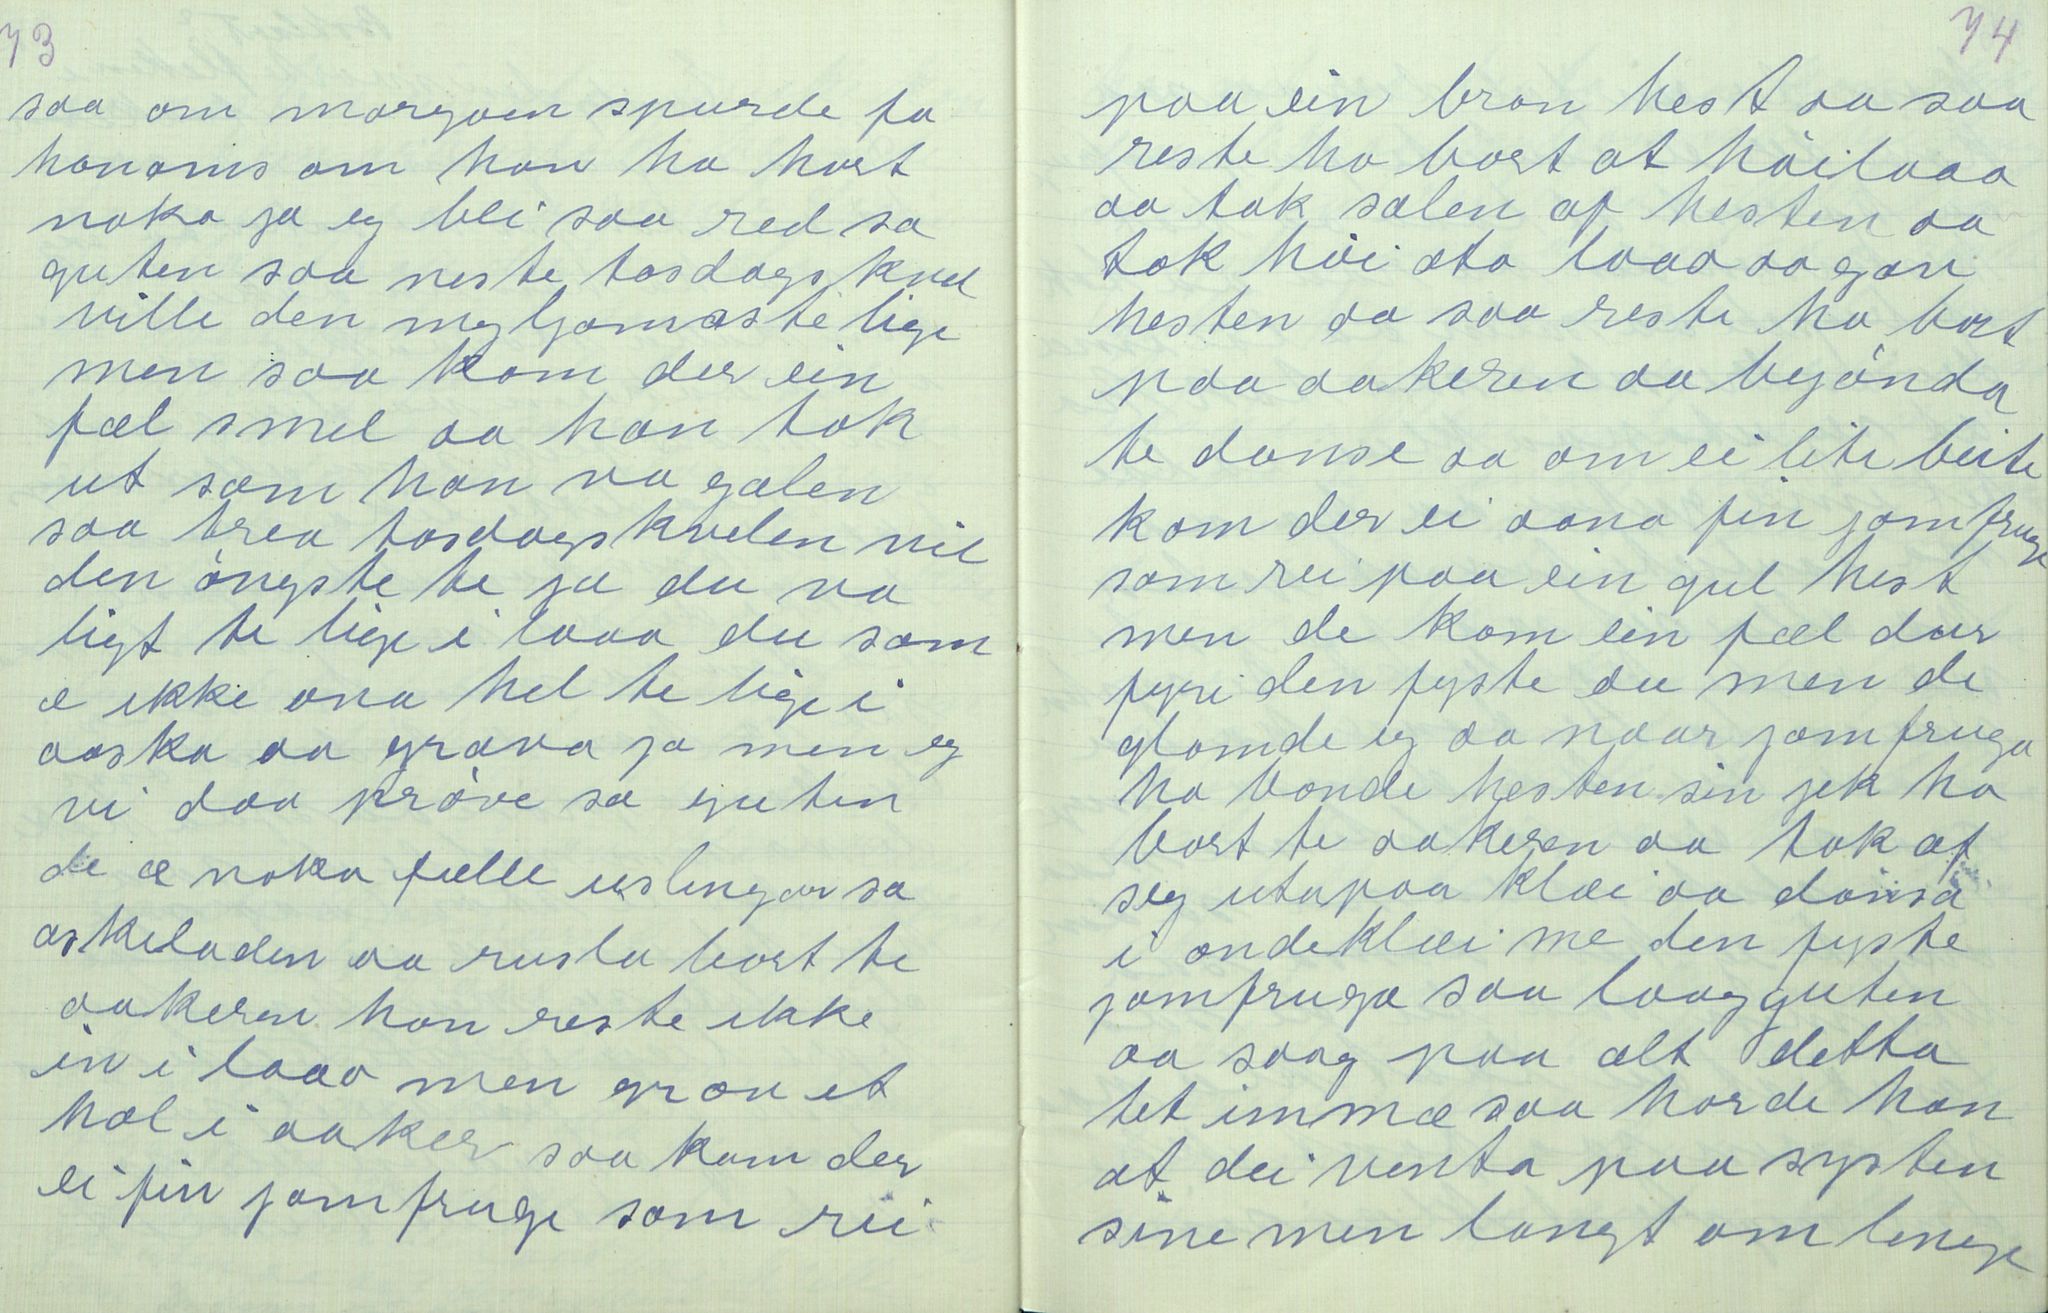 73
saa om morgoen spurde fa
honoms om han ha hørt
noka ja eg blei saa red sa
guten saa neste tosdagskvel
ville den myljomaste lige
men saa kom der ein
fæl smel aa han tok
ut som han va galen
saa trea tosdagskvelen vil
den öngste te ja du va
ligt te lige i laaa du som
æ ikke ana hel te lige i
aaska aa grava ja men eg
vi daa pröve sa guten
de æ noka fælle uslingar sa
askeladen aa rusla bort te
aakeren han reste ikke
in i laaa men grov et
hol i aaker saa kom der
ei fin jomfruge som rei
74
paa ein bron hest aa saa
reste ho bort at höilaaa
aa tok salen af hesten aa
tok höi ato laaa aa gav
hesten aa saa reste ho bort
paa aakeren aa begönda
te danse aa om ei lite beite
kom der ei aana fin jomfruge
som rei paa ein gul hest
men de kom ein fæl dur
fyri den fyste au men de
glømde eg aa naar jomfruga
ha bonde hesten sin jek ho
bort te aakeren aa tok af
seg utapaa klæi aa dansa
i ondeklæi me den fyste
jomfruga saa laag guten
aa saag paa alt detta
tet immæ saa horde han
at dei venta paa systen
sine men langt om lenge